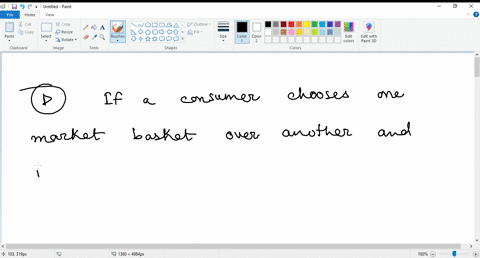 Untitled - Paint
File Home View
Paste Cut Copy Select Crop Resize Rotate Brushes Outline Fill Size Color 1 Color 2 Edit colors Edit with Paint 3D
Clipboard Image Tools Shapes Colors
D If a consumer chooses one
market basket over another and
i
103, 219px 1380 × 4984px 100%